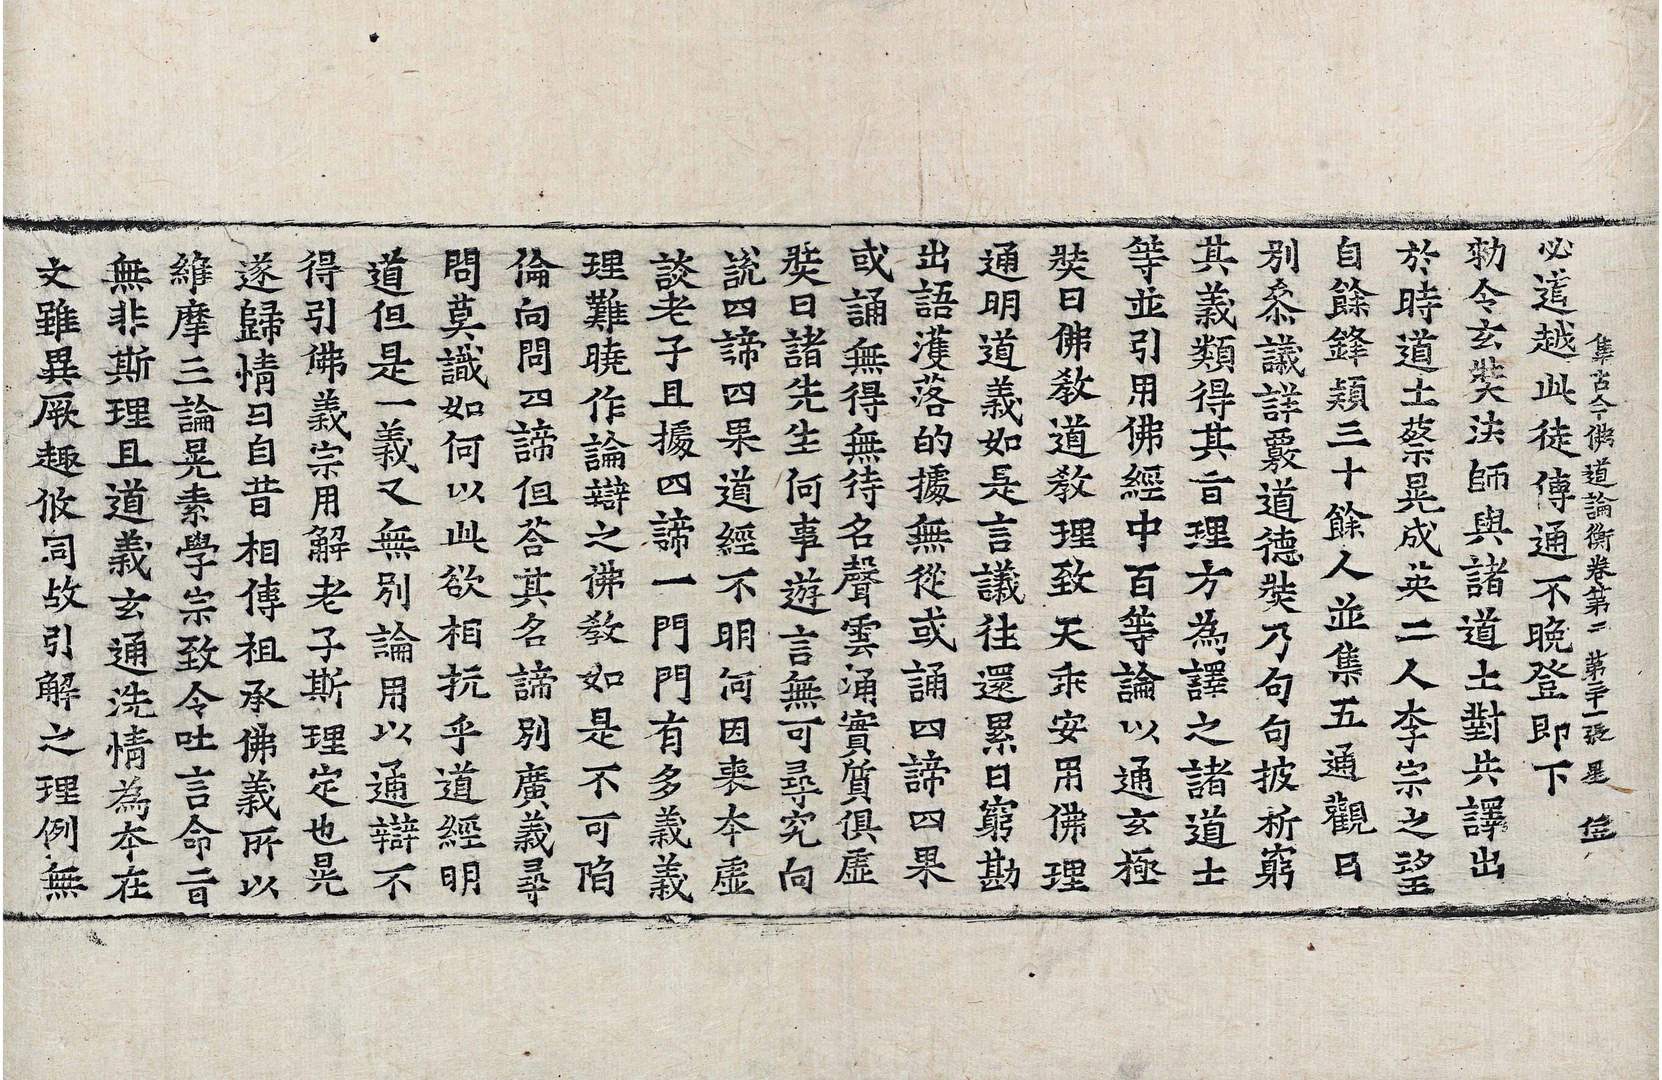 集古今佛道論衡卷第二 第二十一張 星
必遠越此徒傳通不晚登即下
勑令玄奘法師與諸道士對共譯出
於時道士蔡晃成英二人李宗之望
自餘鋒穎三十餘人並集五通觀日
別叅議詳覈道德奘乃句句披析窮
其義類得其旨理方為譯之諸道士
等並引用佛經中百等論以通玄極
奘曰佛教道教理致天乖安用佛理
通明道義如是言議往還累日窮勘
出語濩落的據無從或誦四諦四果
或誦無得無待名聲雲涌實質俱虛
奘曰諸先生何事遊言無可尋究向
說四諦四果道經不明何因喪本虛
談老子且據四諦一門門有多義義
理難曉作論辯之佛教如是不可陷
倫向問四諦但荅其名諦別廣義尋
問莫識如何以此欲相抗乎道經明
道但是一義又無別論用以通辯不
得引佛義宗用解老子斯理定也晃
遂歸情曰自昔相傳祖承佛義所以
維摩三論晃素學宗致令吐言命旨
無非斯理且道義玄通洗情為本在
文雖異厥趣攸同故引解之理例無